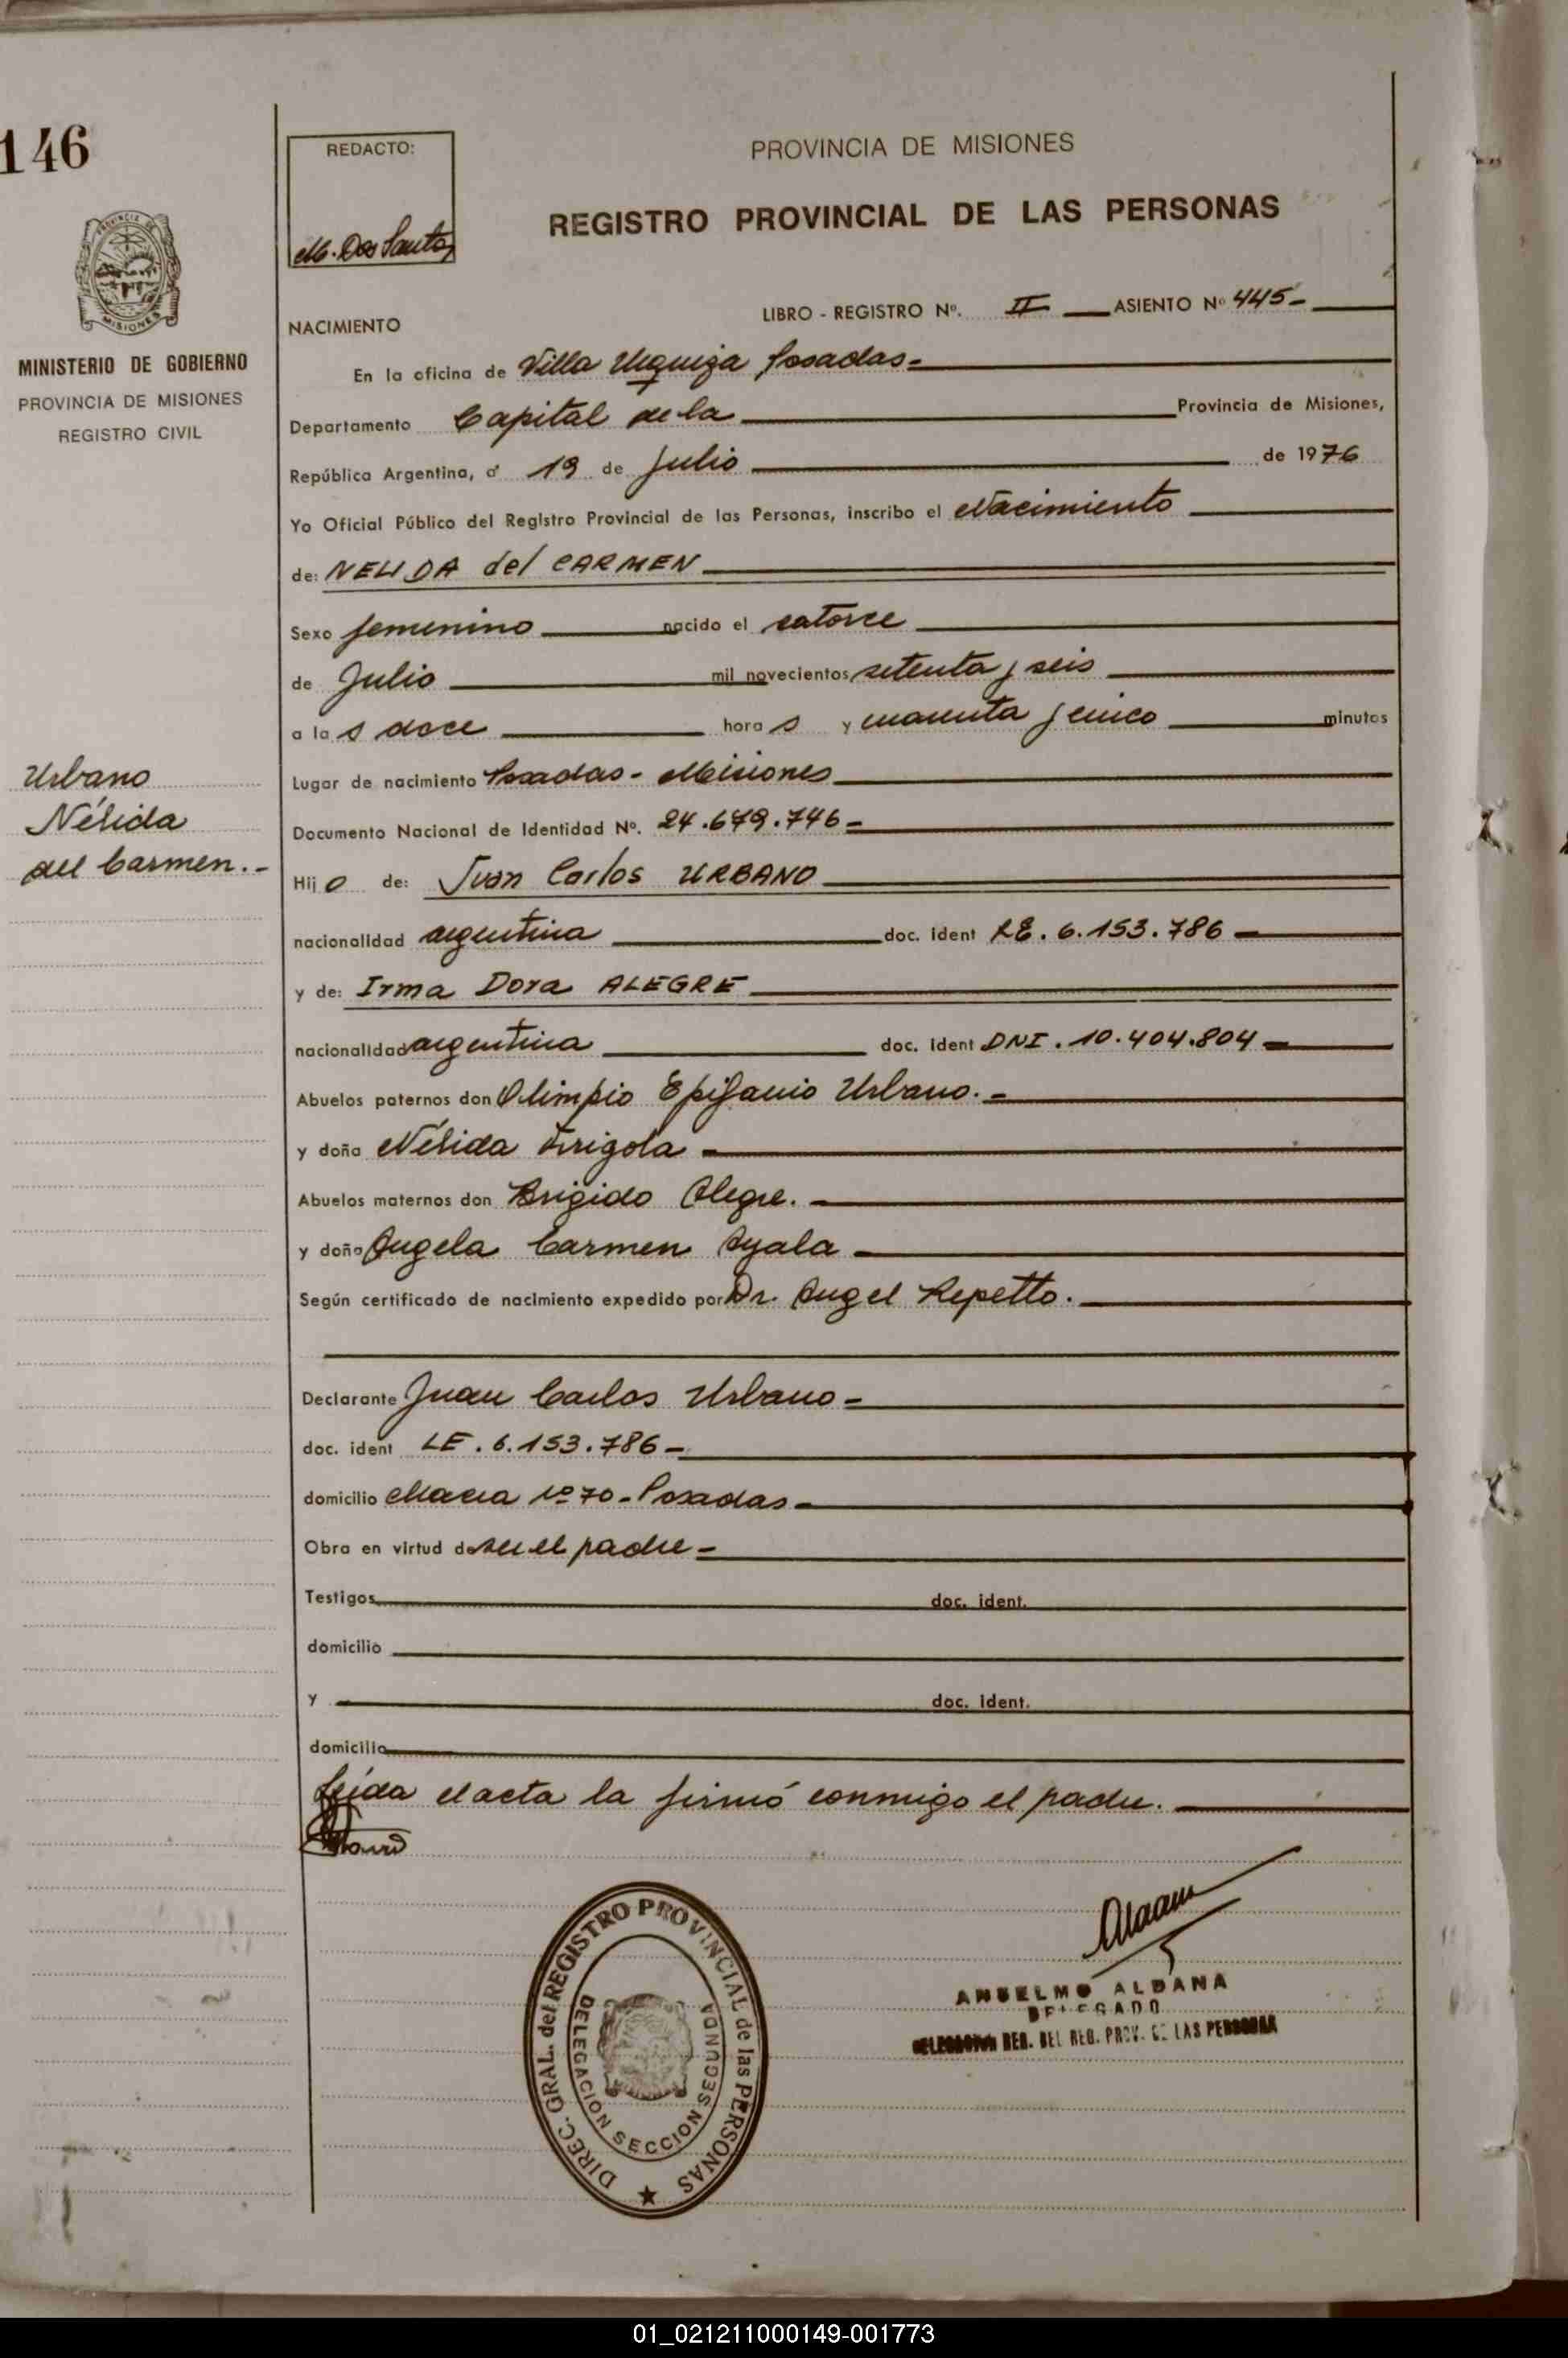 146
REDACTO:
M. Dos Santos
PROVINCIA DE MISIONES
REGISTRO PROVINCIAL DE LAS PERSONAS
PROVINCIA DE
MISIONES
MINISTERIO DE GOBIERNO
PROVINCIA DE MISIONES
REGISTRO CIVIL
NACIMIENTO
LIBRO - REGISTRO Nº. II ASIENTO Nº 445-
En la oficina de Villa Urquiza Posadas-
Departamento Capital de la Provincia de Misiones,
República Argentina, a 19 de Julio de 1976
Yo Oficial Público del Registro Provincial de las Personas, inscribo el Nacimiento
de: NELIDA del CARMEN
Sexo femenino nacido el catorce
de Julio mil novecientos setenta y seis
a la s doce hora s y cuarenta y cinco minutos
Lugar de nacimiento Posadas - Misiones
Documento Nacional de Identidad Nº. 24.679.746-
Urbano
Nélida
del Carmen.-
Hij o de: Juan Carlos URBANO
nacionalidad argentina doc. ident LE. 6.153.786-
y de: Irma Dora ALEGRE
nacionalidad argentina doc. ident DNI. 10.404.804-
Abuelos paternos don Olimpio Epifanio Urbano.-
y doña Nélida Frigola-
Abuelos maternos don Brigido Alegre.-
y doña Angela Carmen Ayala-
Según certificado de nacimiento expedido por Dr. Angel Repetto.
Declarante Juan Carlos Urbano-
doc. ident LE. 6.153.786-
domicilio Nº 70-Posadas-
Obra en virtud de ser el padre-
Testigos doc. ident.
domicilio
y doc. ident.
domicilio
Leída el acta la firmó conmigo el padre.
DIREC. GRAL. del REGISTRO PROVINCIAL de las PERSONAS
DELEGACIÓN SECCION SEGUNDA
ANSELMO ALDANA
DELEGADO
DELEGACION REG. DEL REG. PROV. DE LAS PERSONAS
01_021211000149-001773